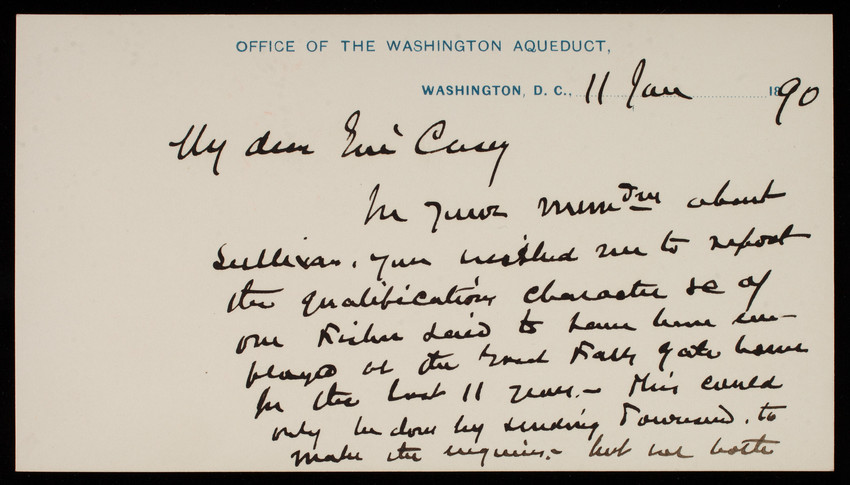 OFFICE OF THE WASHINGTON AQUEDUCT,
WASHINGTON, D. C., 11 Jan 1890
My dear Casey
In your mem^dm about
Sullivan, you wished me to report
the qualifications character &c of
one Fisher said to have been em-
ployed at the Great Falls gate house
for the last 11 years. – This could
only be done by sending Townsend, to
make the inquiries. – but not both